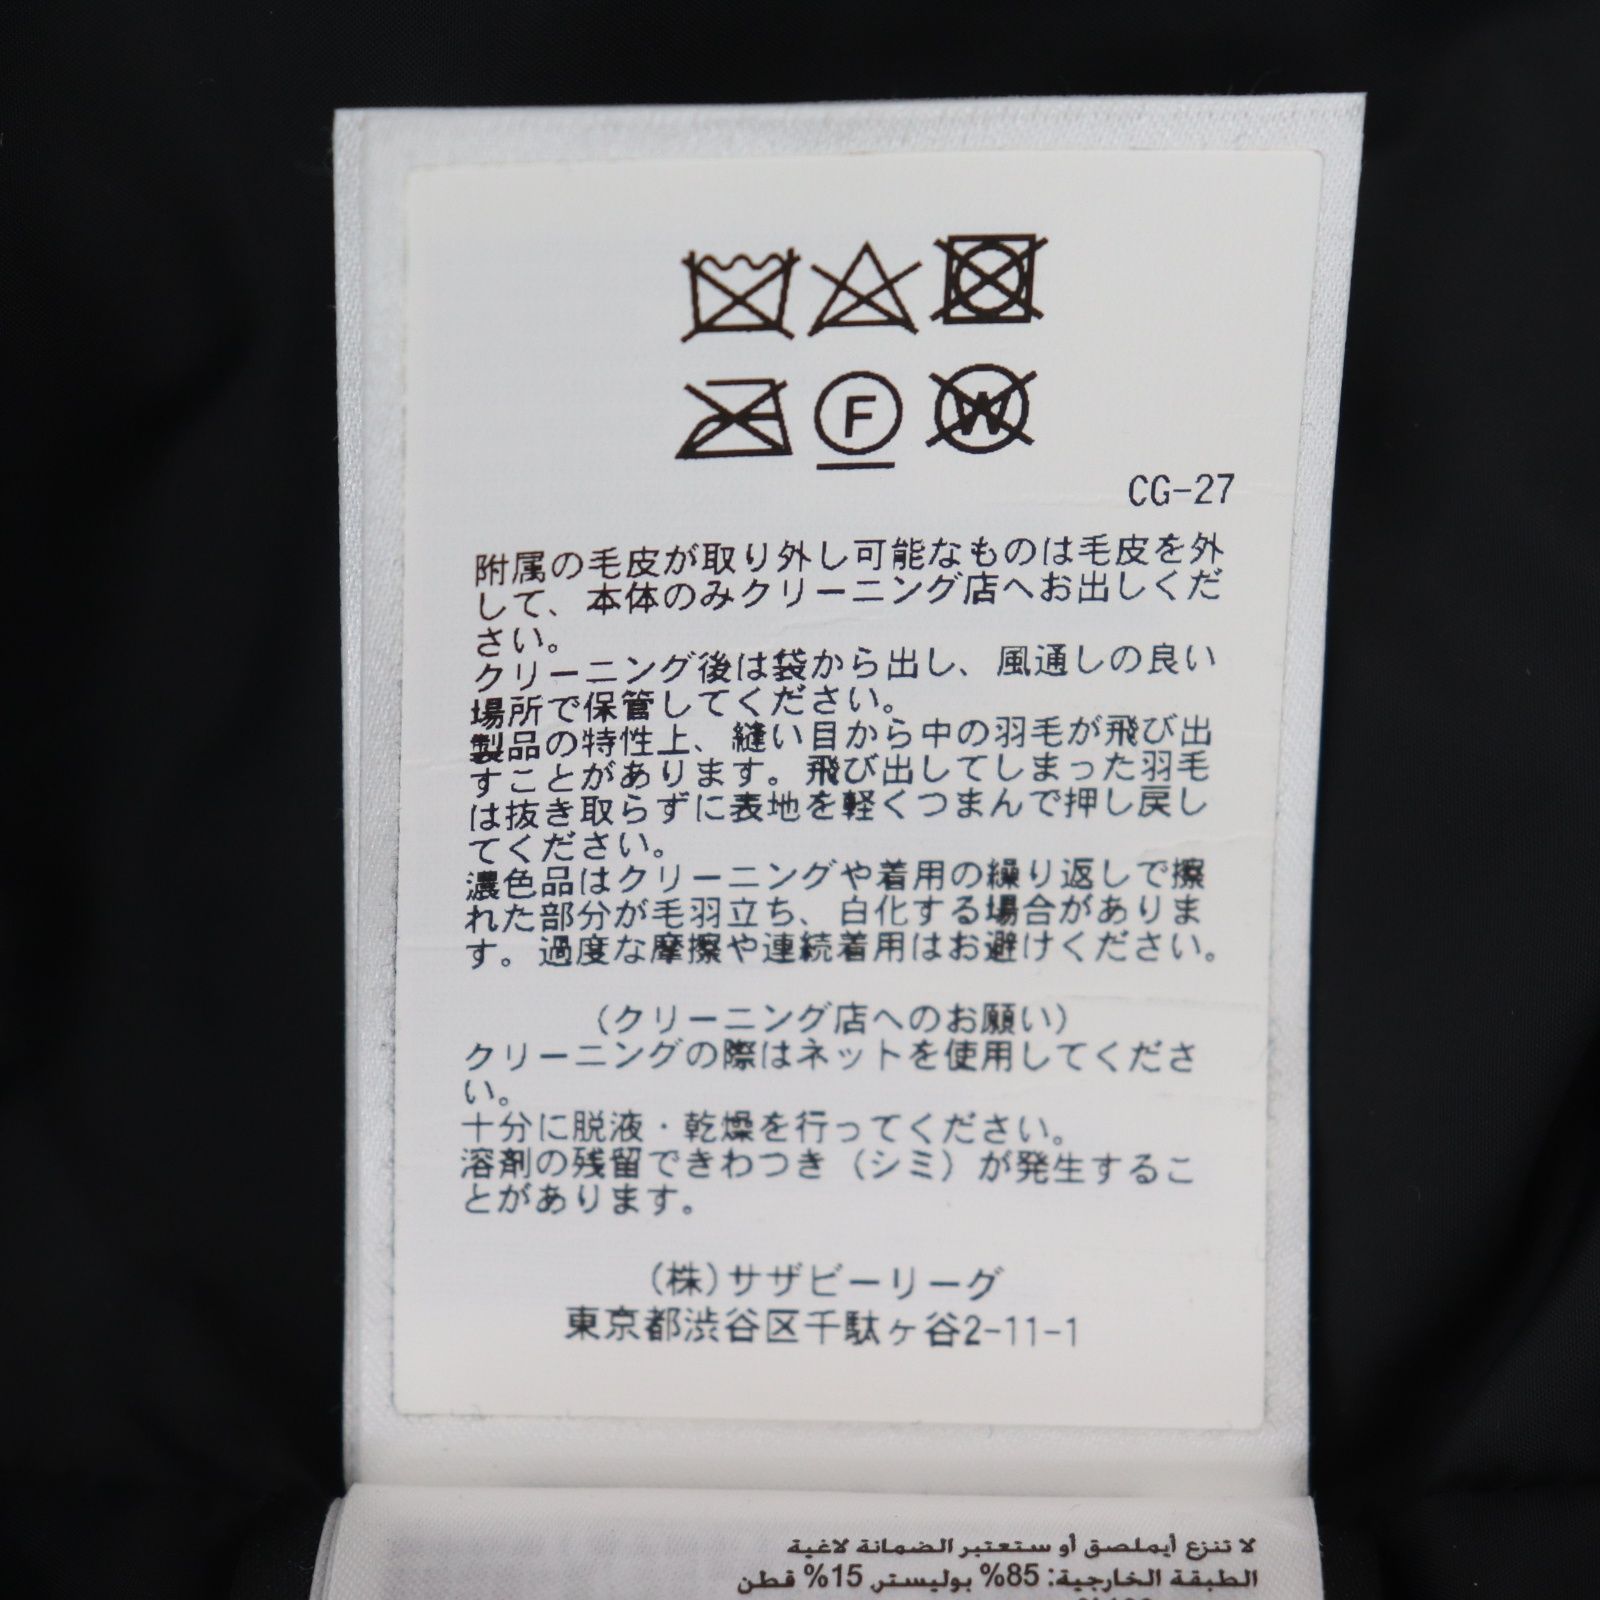 F
W
CG-27
附属の毛皮が取り外し可能なものは毛皮を外
して、本体のみクリーニング店へお出しくだ
さい。
クリーニング後は袋から出し、風通しの良い
場所で保管してください。
製品の特性上、縫い目から中の羽毛が飛び出
すことがあります。飛び出してしまった羽毛
は抜き取らずに表地を軽くつまんで押し戻し
てください。
濃色品はクリーニングや着用の繰り返しで擦
れた部分が毛羽立ち、白化する場合がありま
す。過度な摩擦や連続着用はお避けください。
(クリーニング店へのお願い)
クリーニングの際はネットを使用してくださ
い。
十分に脱液・乾燥を行ってください。
溶剤の残留できわつき(シミ)が発生するこ
とがあります。
(株)サザビーリーグ
東京都渋谷区千駄ヶ谷2-11-1
لا تنزع أيملصق أو ستعتبر الضمانة لاغية
الطبقة الخارجية: 85% بوليستر 15% قطن